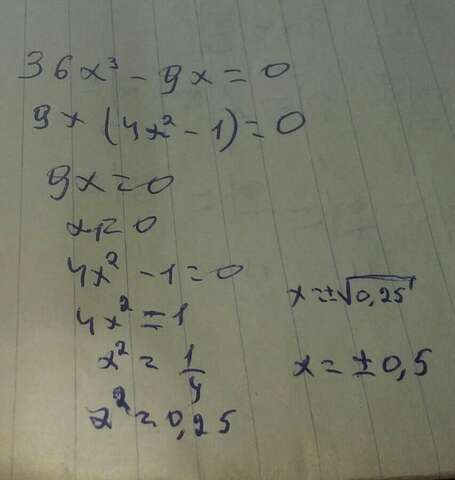 36x³ - 9x = 0
9x (4x² - 1) = 0
9x = 0
x₁ = 0
4x² - 1 = 0
4x² = 1
x² = 1/4
x² = 0,25
x = ±√0,25
x = ±0,5